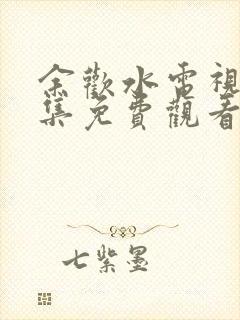 余歡水電視
集免費觀看
七紫墨